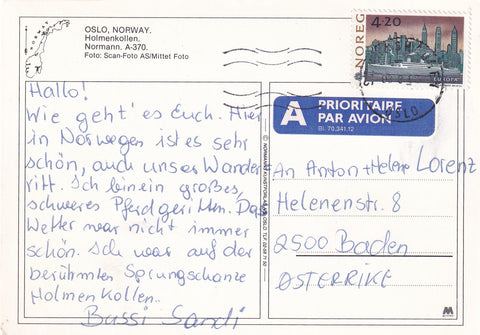 NORWAY
OSLO, NORWAY.
Holmenkollen.
Normann. A-370.
Foto: Scan-Foto AS/Mittet Foto
NOREG
4.20
EUROPA
OSLO
A
PRIORITAIRE
PAR AVION
Bl. 70.341.12
Hallo!
Wie geht' es Euch. Hier
in Norwegen ist es sehr
schön, auch unser Wander
ritt. Ich bin ein großes,
schweres Pferd geritten. Das
Wetter war nicht immer
schön. Ich war auf der
berühmten Sprungschanze
Holmenkollen.
Bussi Sandi
An Anton + Helene Lorenz
Helenenstr. 8
2500 Baden
ÖSTERRIKE